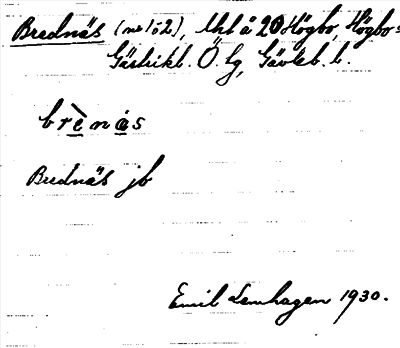 Brednäs (nr 1 o 2), Uht å 20 Högbo, Högbo s
Gästrikl. Ö. tg, Gävleb. l.
brènás
Brednäs jb
Emil Lenhagen 1930.